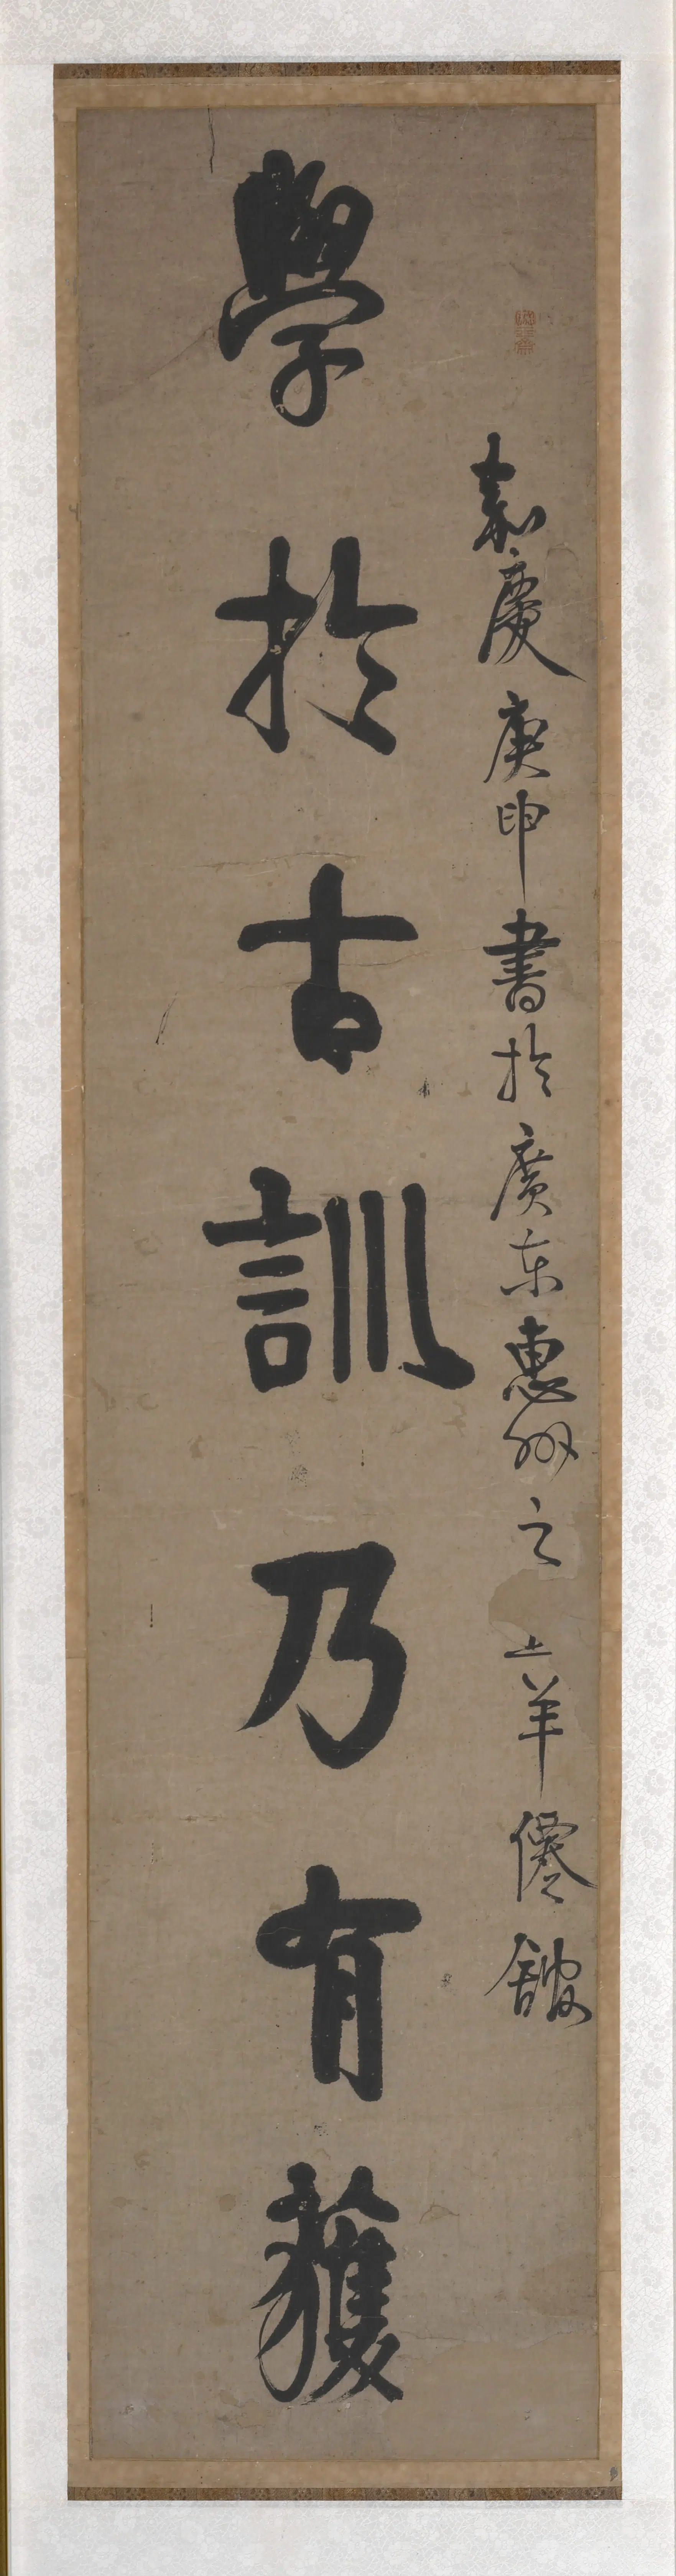 嘉慶庚申書於廣東惠州之羊僊館
學於古訓乃有獲